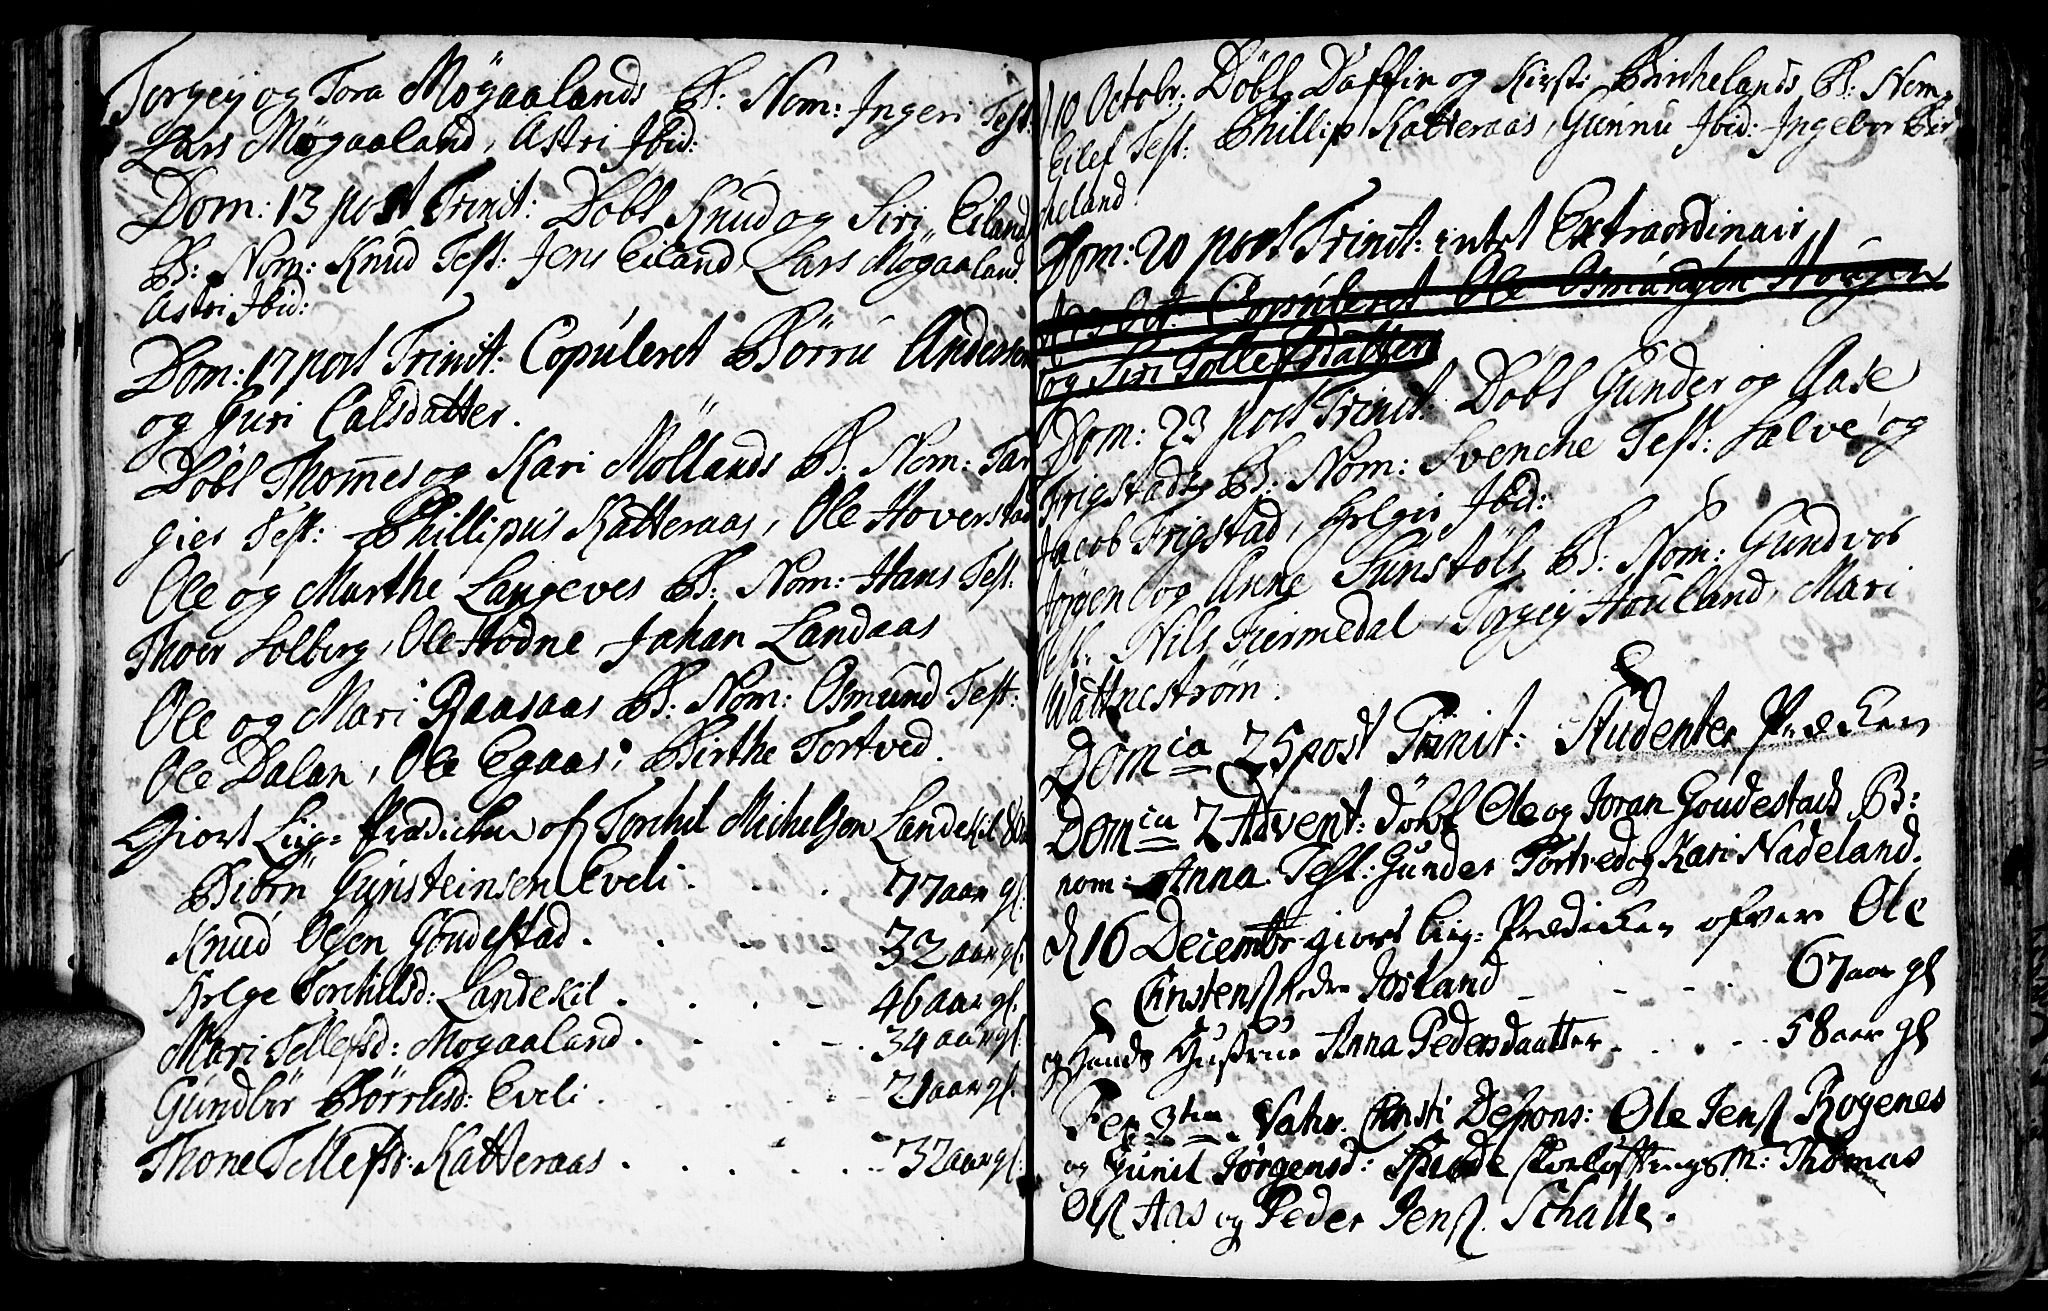 Torgeÿ og Tora Møgaalands B: Nom: Ingeri Test:
Lars Møgaaland, Astri Ibid:
Dom: 13 post Trinit: Döbt Knud og Siri Eiland
B: Nom: Knud Test: Jens Eiland, Lars Møgaaland
Astri Ibid:
Dom: 17 post Trinit: Copuleret Börru Anderssen
og Guri Calsdatter.
Döbt Thom̅es og Kari Möllands B: Nom: Tar
gier Test: Phillipus Katteraas, Ole Hoverstad
Ole og Marthe Langeves B: Nom: Hans Test:
Thoer Solberg, Ole Hodne Johan Landaas
Ole og Mari Raasaas B: Nom: Osmund Test:
Ole Dalan, Ole Egaas; Birthe Tortved.
Giort Liig=Prædicken of Torchel Michelsen Landekil
Biörn Gunsteinsen Eveli . . . 77 aar gl.
Knud Olsen Goudestad . . . 32 aar gl.
Helge Torchilsd: Landekil . . . 46 aar gl.
Mari Tellefsd: Møgaaland . . . 34 aar gl.
Gundbör Börrusd: Eveli . . . 21 aar gl.
Thone Tellefsd: Katteraas . . . 32 aar gl.
d 10 Octobr: Döbt Daffin og Kirst: Birchelands B: Nom:
Eilef Test: Phillip Katteraas, Gunnu Ibid: Ingebor Bir
cheland
Dom: 20 post Trinit: intet Extraordinair
Oct: Copuleret Ole Osmundsen Hougen
og Siri Tollefsdatter
Dom: 23 post Trinit: Döbt Gunder og Aase
Frigstads B: Nom: Svenche Test: Salve og
Jacob Frigstad, Helgie Ibid:
Jörgen og Anne Sunstöls B: Nom: Gundvor
Test. Nils Fiermedal, Torgeÿ Houland, Mari
Wattneström.
Domca 25 post Trinit: Studenter Præken
Domca 2 Advent: döbt Ole og Joran Goudestads B:
nom: Anna. Test: Gunder Tortved og Kari Nadeland.
d 16 Decembr giort liig=Prædicken ofver Ole
Christens. Josland - - - 67 aar gl
og Hands Hustrue Anna Pedersdaatter . . . 58 aar gl
Fer 3tia Nativ. Christi Despons: Ole Jens. Rogenes
og Gunil Jörgensd: forlofningsm: Thomas
Ols. Aas og Peder Jens. Schalle.